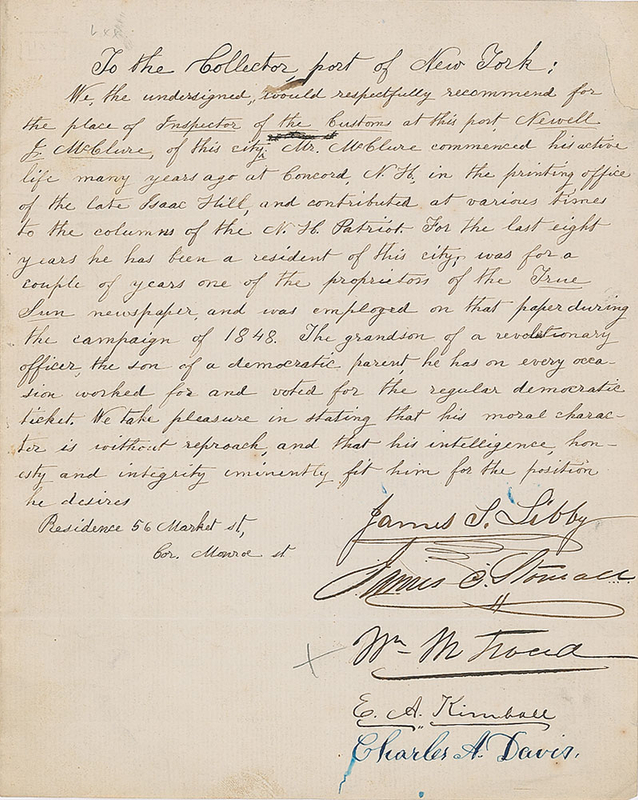 To the Collector, port of New York:
We, the undersigned, would respectfully recommend for
the place of Inspector of the Customs at this port, Newell
J. McClure, of this city. Mr. McClure commenced his active
life many years ago at Concord, N. H., in the printing office
of the late Isaac Hill, and contributed at various times
to the columns of the N. H. Patriot. For the last eight
years he has been a resident of this city, was for a
couple of years one of the proprietors of the True
Sun newspaper, and was employed on that paper during
the campaign of 1848. The grandson of a revolutionary
officer, the son of a democratic parent he has on every occa-
sion worked for and voted for the regular democratic
ticket. We take pleasure in stating that his moral charac-
ter is without reproach, and that his intelligence, hon-
esty and integrity eminently fit him for the position
he desires
Residence 56 Market st,
Cor. Monroe st
James S. Libby
James C.
Wm M
E. A. Kimball
Charles A. Davis.